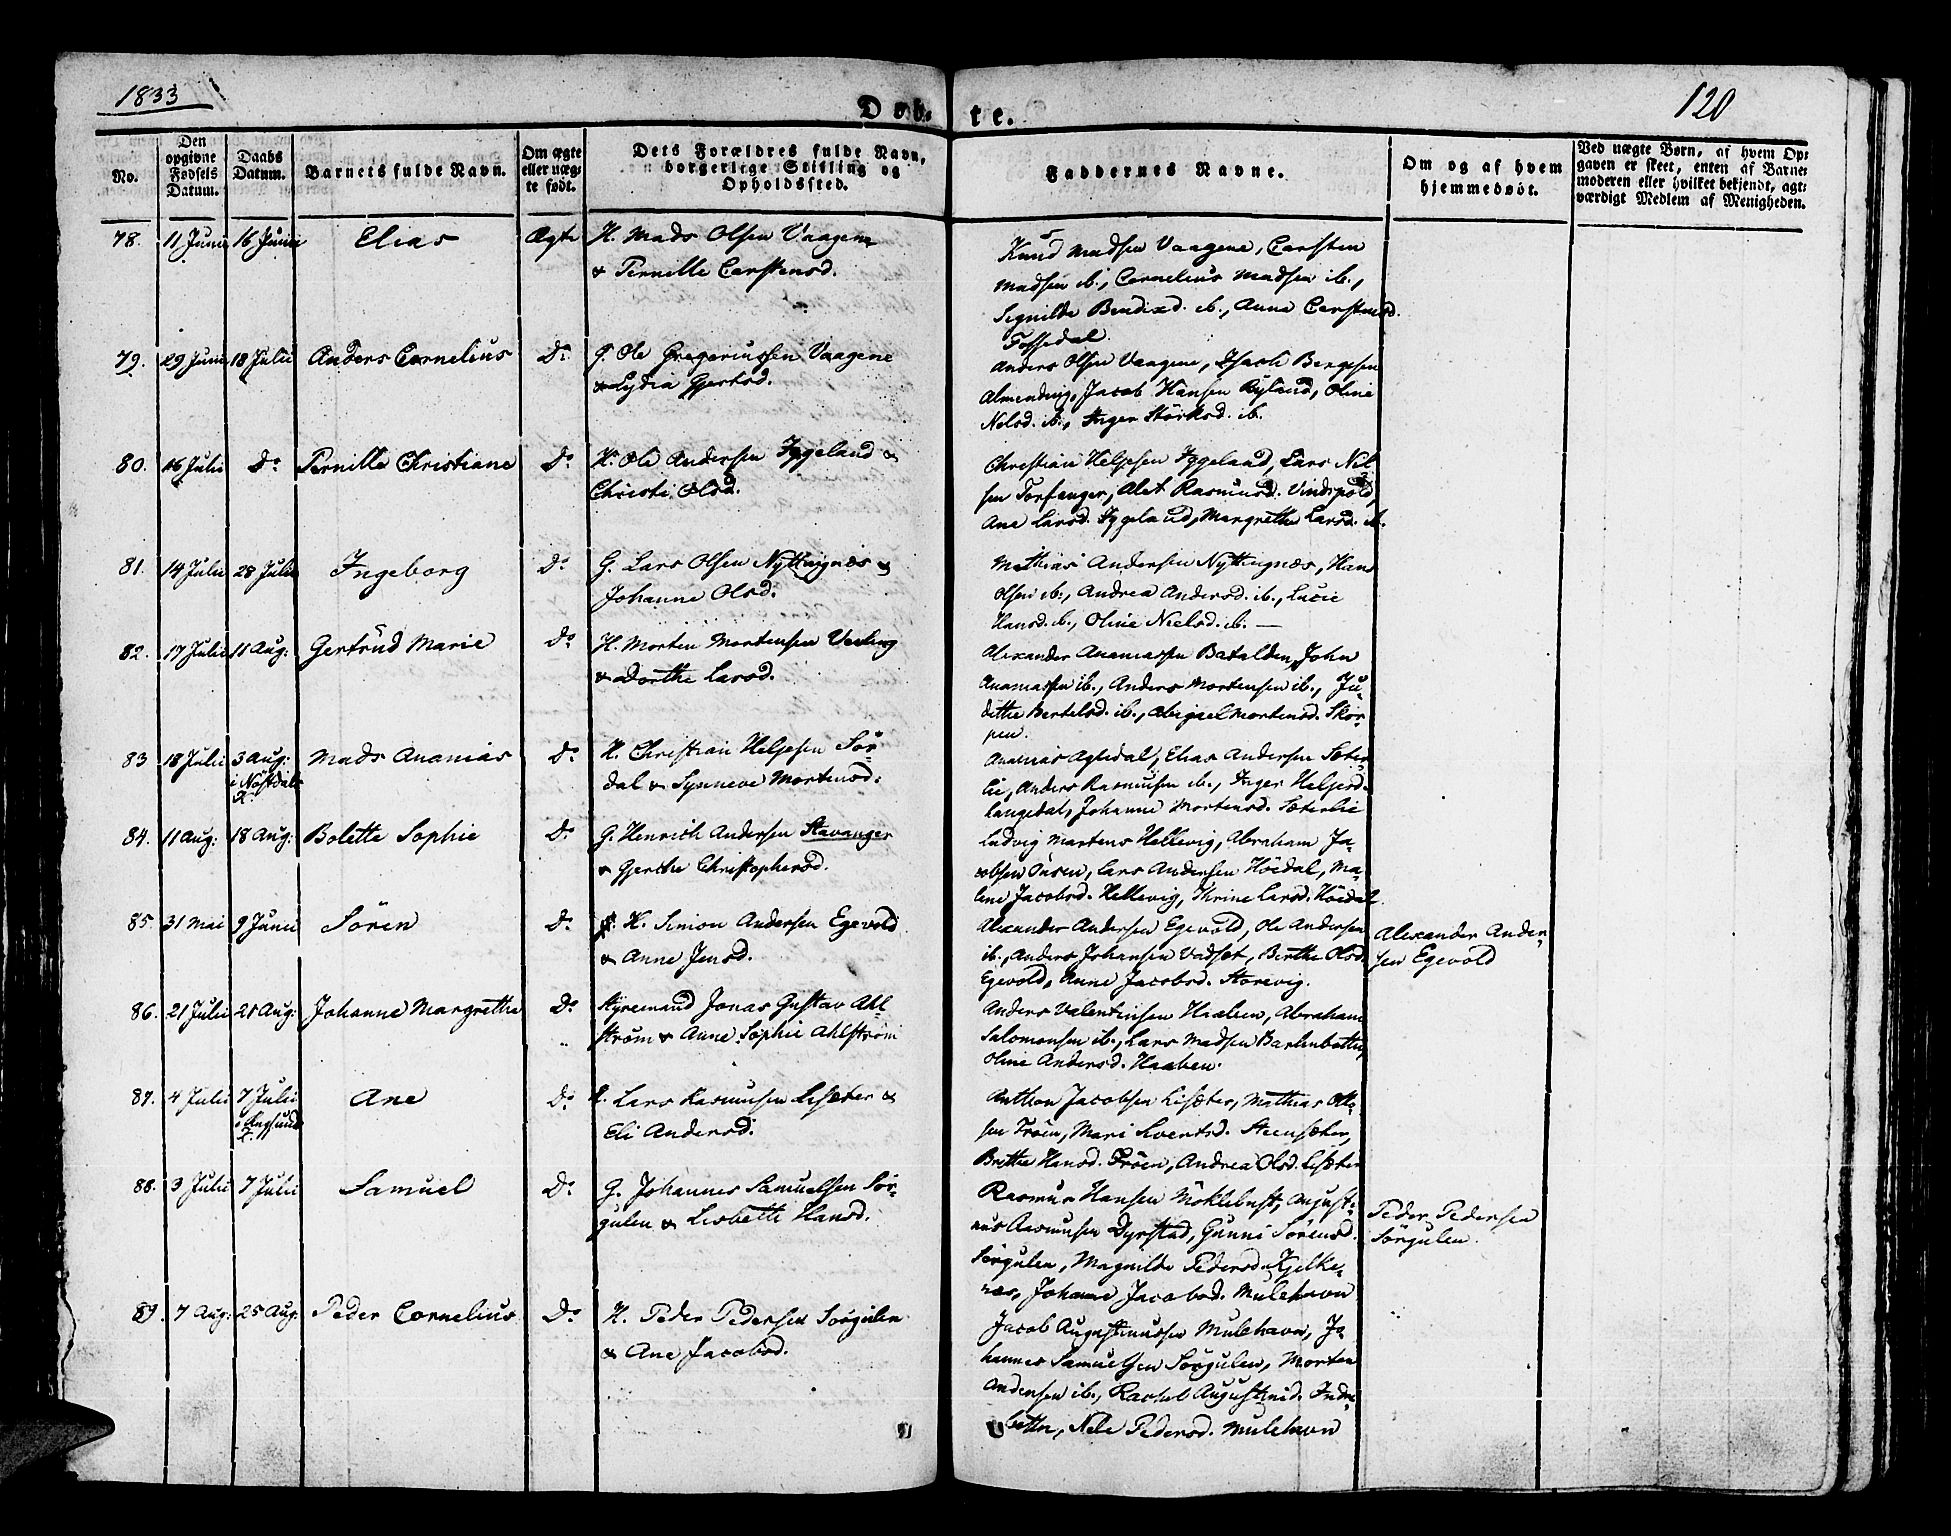 1833
120
Døb-
te.
No.
Den opgivne Fødsels Datum.
Daabs Datum.
Barnets fulde Navn.
Om ægte eller uæg-te født.
Dets Forældres fulde Navn, borgerlige Stilling og Opholdssted.
Faddernes Navne.
Om og af hvem hjemmedøbt.
Ved uægte Børn, af hvem Op-gaven er skeet, enten af Barne-moderen eller hvilket bekjendt, agt-værdigt Medlem af Menigheden.
78. 11 Junii 16 Junii Elias Ægte H. Mads Olsen Vaagene
& Pernille Carstensd.
Knud Madsen Vaagene, Carsten
Madsen ib., Cornelius Madsen ib.,
Segnilde Bendixd. ib., Anna Carstensd.
Fossedal.
79. 29 Junii 18 Julii Anders Cornelius Do G. Ole Gregeriussen Vaagene
& Lydia Gjertsd.
Anders Olsen Vaagene, Isach Bergesen
Almending, Jacob Hansen Ryland, Oline
Nelsd. ib., Inger Störksd. ib.
80. 16 Julii Do Pernille Christiane Do H. Ole Andersen Iggeland &
Christi Olsd.
Christian Heljesen Iggeland, Lars Nel-
sen Torfanger, Alet Rasmusd. Vindspold,
Ane Larsd. Iggeland, Margrethe Larsd. ib.
81. 14 Julii 28 Julii Ingeborg Do G. Lars Olsen Nyttingnæs &
Johanne Olsd.
Mathias Andersen Nyttingnæs, Hans
Olsen ib., Andrea Andersd. ib., Lucie
Hansd. ib., Oline Nielsd. ib.
82. 17 Julii 11 Aug: Gertrud Marie Do H. Morten Mortensen Vedvig
& Dorthe Larsd.
Alexander Ananiassen Batalden, John
Ananiassen ib., Anders Mortensen ib., Ju-
dithe Bertelsd. ib., Abigael Mortensd. Skor-
pen.
83 18 Julii 3 Aug: i Nöstdals K. Mads Ananias Do H. Christian Heljesen Sör-
dal & Synneve Mortensd.
Ananias Agledal, Elias Andersen Sæter-
lie, Anders Rasmusen ib., Inger Heljesd.
Langedal, Johanne Mortensd. Sæterlie
84. 11 Aug: 18 Aug: Bolette Sophie Do G. Henrich Andersen Stavanger
& Gjerthe Christophersd.
Ludvig Martens Hellevig, Abraham Ja-
cobsen Onsen, Lars Andersen Höidal, Ma-
lene Jacobsd. Hellevig, Thrine Larsd. Höidal.
85. 31 Mai 9 Junii Sören Do H. Simon Andersen Egevold
& Anne Jensd.
Alexander Andersen Egevold, Ole Andersen
ib., Anders Johansen Vadset, Birthe Olsd.
Egevold, Anne Jacobsd. Storevig.
Alexander Ander-
sen Egevold
86. 21 Julii 21 Aug: Johanne Margrethe Do Styremand Jonas Gustav Ahl-
ström & Anne Sophie Ahlström
Anders Valentinsen Haaben, Abraham
Salomonsen ib., Lars Madsen Barlinbotten,
Oline Andersd. Haaben.
87. 4 Julii 7 Julii Ane Do H. Lars Rasmusen Lisæter &
Eli Andersd.
Anthon Jacobsen Lisæter, Mathias Ole-
sen Tröen, Mari Sivertsd. Steensæter,
Brithe Hansd. Tröen, Andrea Olsd. Lisæter
88. 3 Julii 7 Julii Samuel Do G. Johannes Samuelsen Sör-
gulen & Lisbeth Hansd.
Rasmus Hansen Möklebust, August-
inus Rasmusen Dyrstad, Gunni Sörensd.
Sörgulen, Magnilde Pedersd. Kjelke-
næs, Johanne Jacobsd. Mulehavn
Peder Pedersen
Sörgulen.
89. 7 Aug: 25 Aug. Peder Cornelius Do H. Peder Pedersen Sörgulen
& Ane Jacobsd.
Jacob Augustinussen Mulehavn, Jo-
hannes Samuelsen Sörgulen, Morten
Andersen ib., Rachel Augustinid. Indre-
botten, Nele Pedersd. Mulehavn